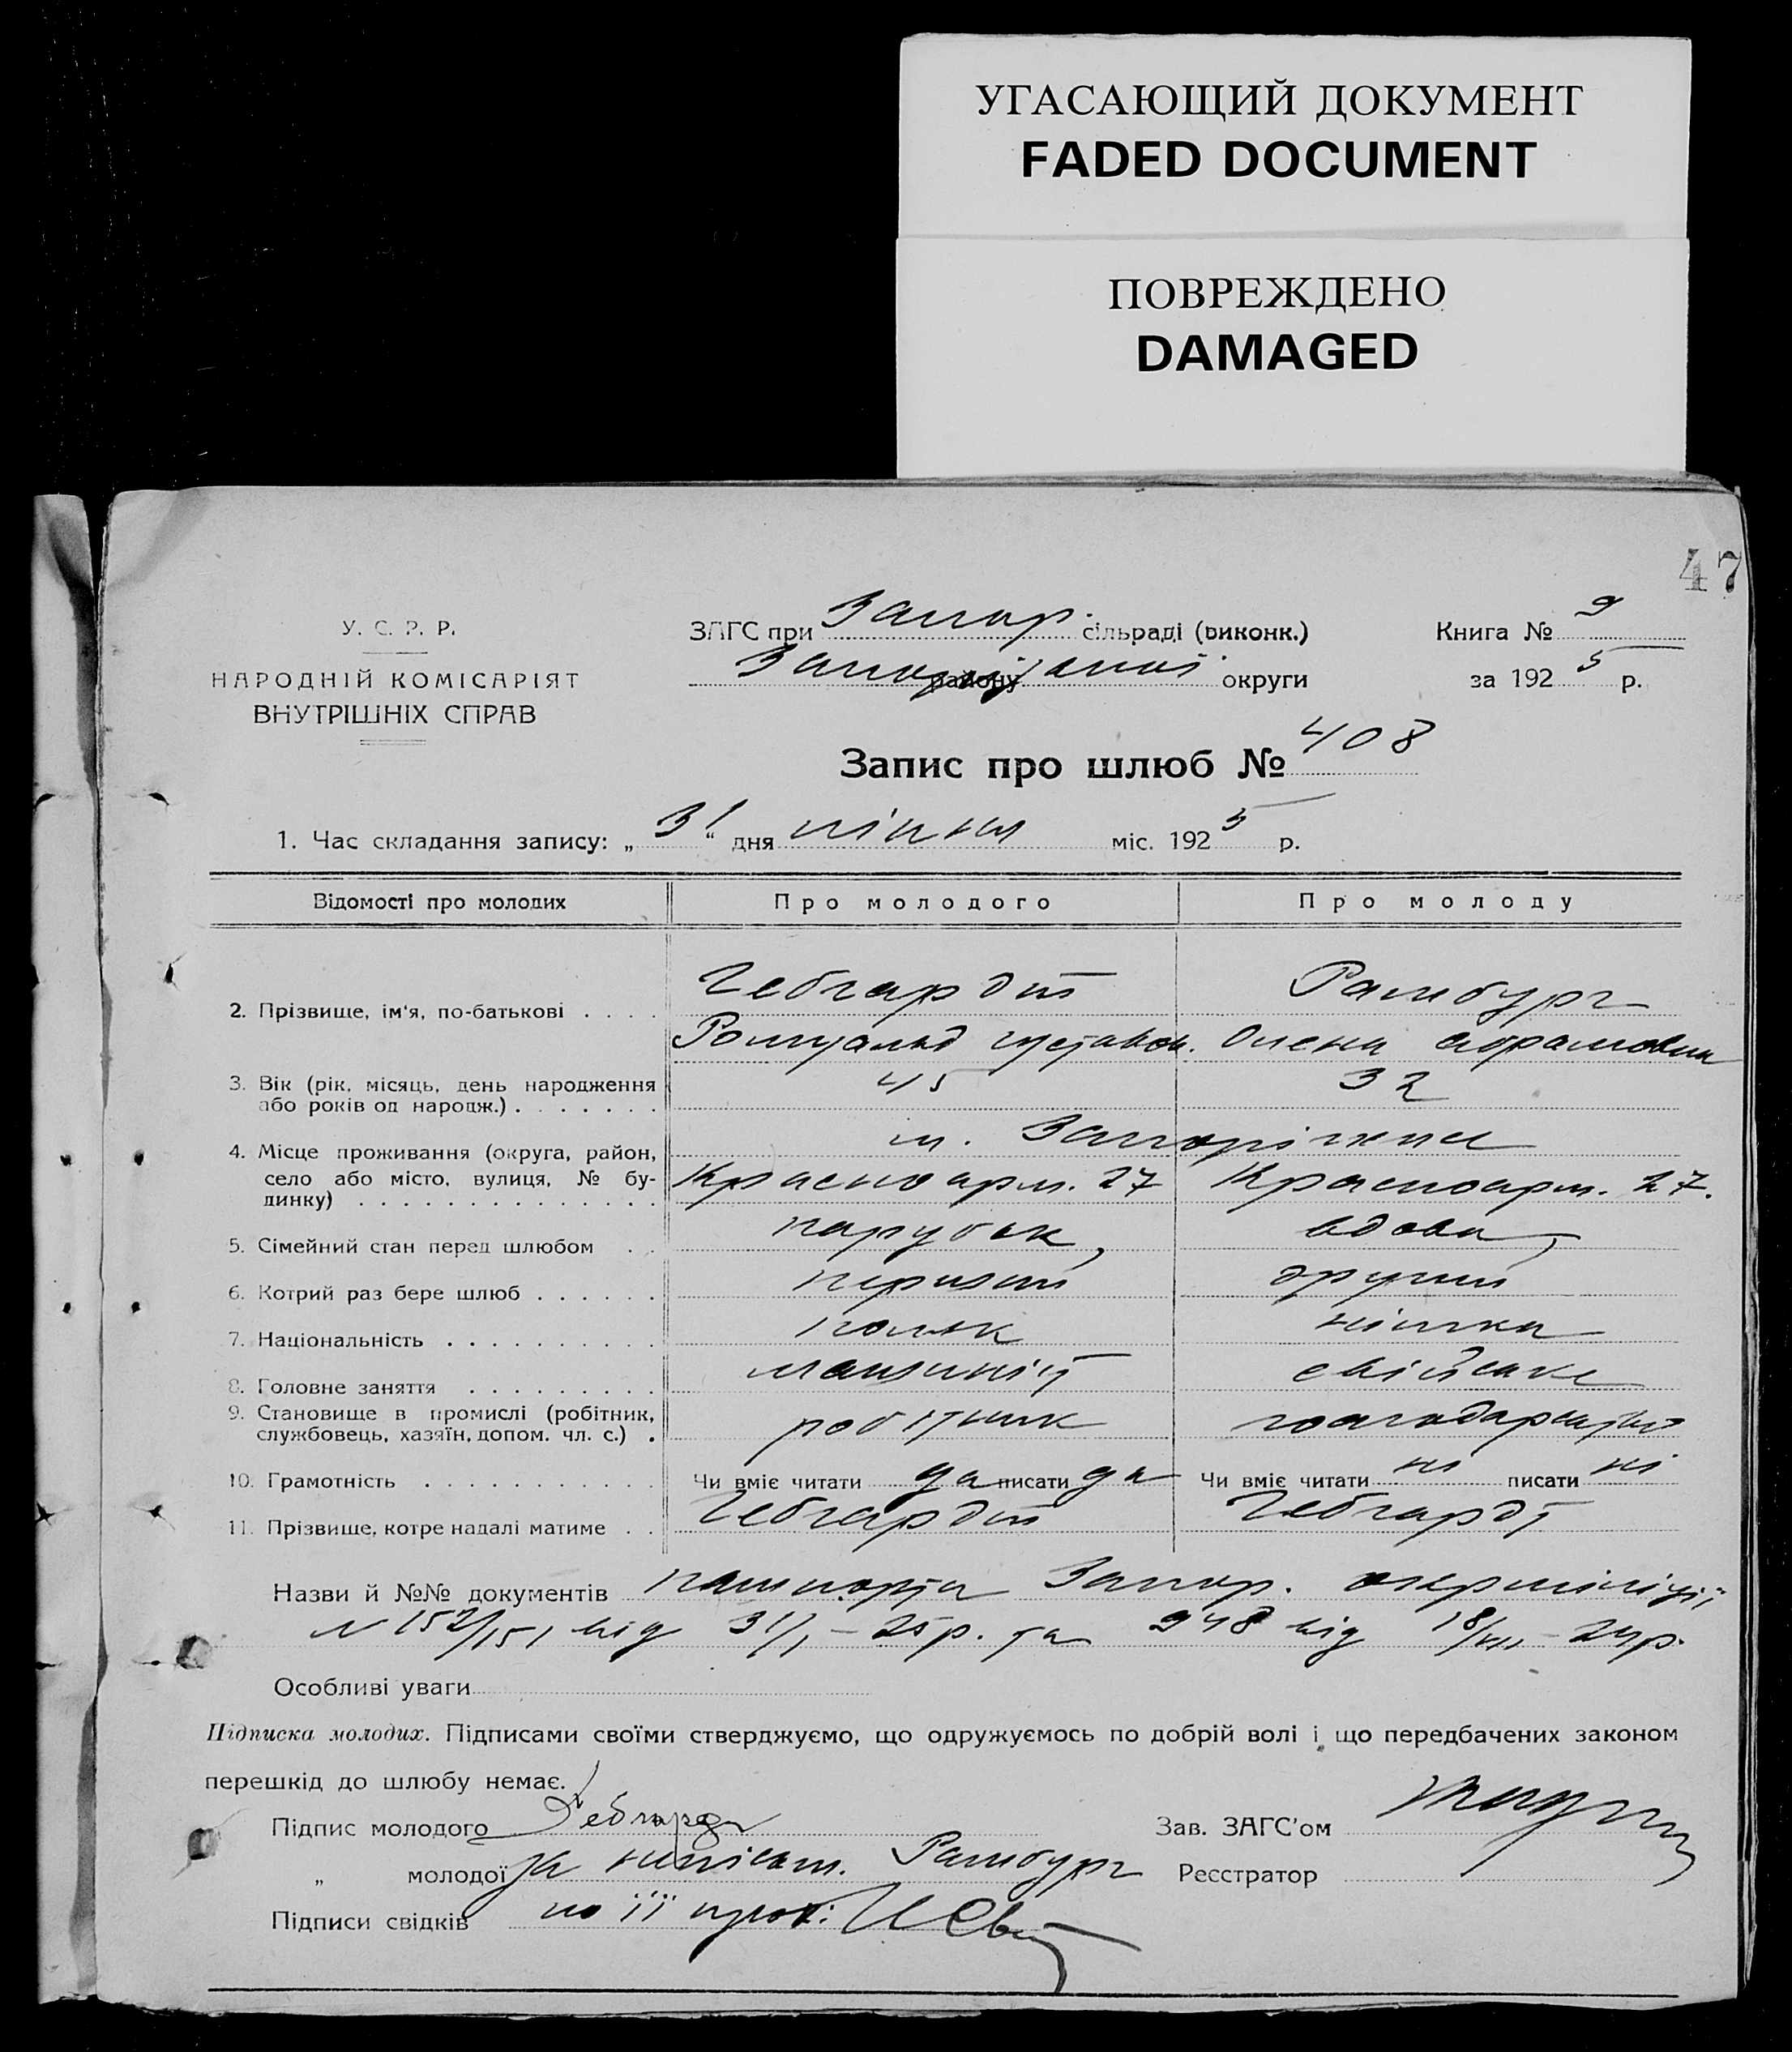 УГАСАЮЩИЙ ДОКУМЕНТ
FADED DOCUMENT
ПОВРЕЖДЕНО
DAMAGED
47
У. С. Р. Р.
НАРОДНІЙ КОМІСАРІЯТ
ВНУТРІШНІХ СПРАВ
ЗАГС при Запор. сільраді (виконк.)
району округи
Книга № 9
за 1925 р.
Запис про шлюб № 408
1. Час складання запису: „31“ дня липня міс. 1925 р.
Відомості про молодих Про молодого Про молоду
2. Прізвище, ім'я, по-батькові . . . . Гебгардт Рамбург
Ромуальд Густавов. Олена Абрамовна
3. Вік (рік, місяць, день народження або років од народж.) . . . . . . . 45 32
4. Місце проживання (округа, район, село або місто, вулиця, № будинку) . . . . . . . . . . . . . . м. Запоріжжя
Красноарм. 27 Красноарм. 27.
5. Сімейний стан перед шлюбом . . парубок, вдова,
6. Котрий раз бере шлюб . . . . . . перший другий
7. Національність . . . . . . . . . . поляк німка
8. Головне заняття . . . . . . . . . машиніст свійське
9. Становище в промислі (робітник, службовець, хазяїн, допом. чл. с.) . робітник господарство
10. Грамотність . . . . . . . . . . . Чи вміє читати да писати да Чи вміє читати ні писати ні
11. Прізвище, котре надалі матиме . . Гебгардт Гебгардт
Назви й №№ документів пашпорта Запор. окрміліції
N 152/151 від 31/I – 25 р. та 948 від 18/VIII – 24 р.
Особливі уваги
Підписка молодих. Підписами своїми стверджуємо, що одружуємось по добрій волі і що передбачених законом
перешкід до шлюбу немає.
Підпис молодого Гебгард Зав. ЗАГС'ом
„ молодої за неписьм. Рамбург Реєстратор
Підписи свідків по її прох: